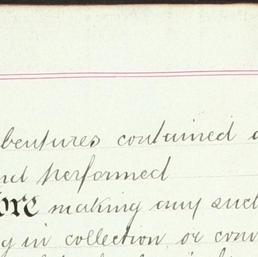 bentures contained a
nd performed
ore making any such
y in collection or conv